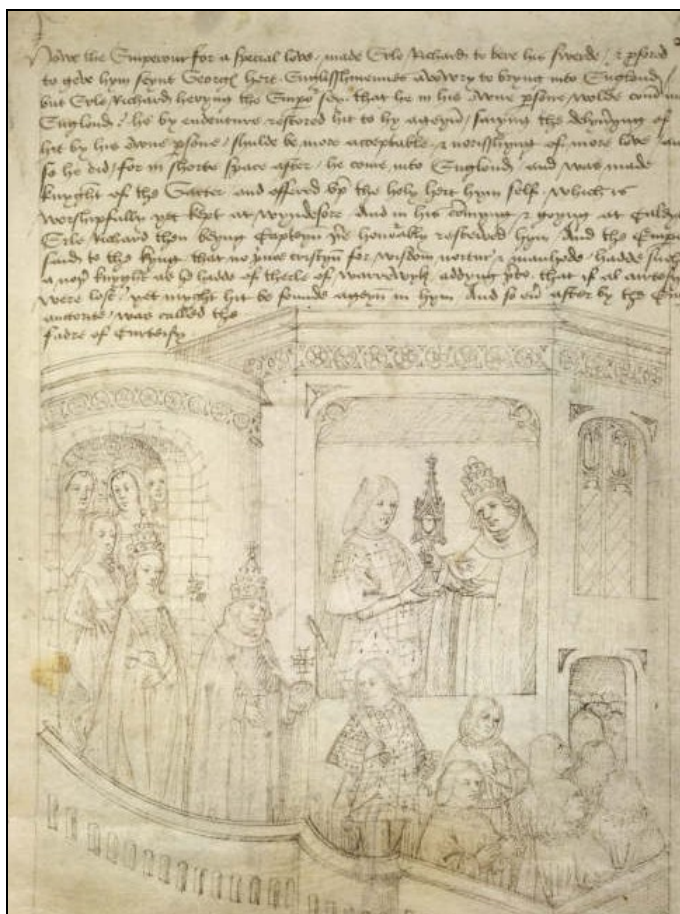 Howe the Emperour for a special love / made Erle Richard to bere his swerde / & pferd
to geve hym seynt Georges hert Englisshmennes avowry to bryng into Englond /
but Erle Richard heryng the Empor sey that he in his owne psone wolde com in
Englond / he by endenture restored hit to hy ageyn / saiyng the delyvyng of
hit by his owne psone / shulde be more acceptable & norisshyng of more love
so he did / for in shorte space after / he come into Englond and was made
knyght of the Garter and offered up the holy hert hym self which is
worshipfully yet kept at wyndesore And in his comyng & goyng at Caleys
Erle Richard then beyng Capteyn honorably resceived hym And the Empor
said to the kyng that no prince cristyn for wisdom nortur & manhode / hadde such
a knyght as he hadde of therle of warrewyk addyng that if al curtesy
were lost / yet myght hit be founde ageyn in hym And so after by the
auctorite / was called the
fadre of Curteisy